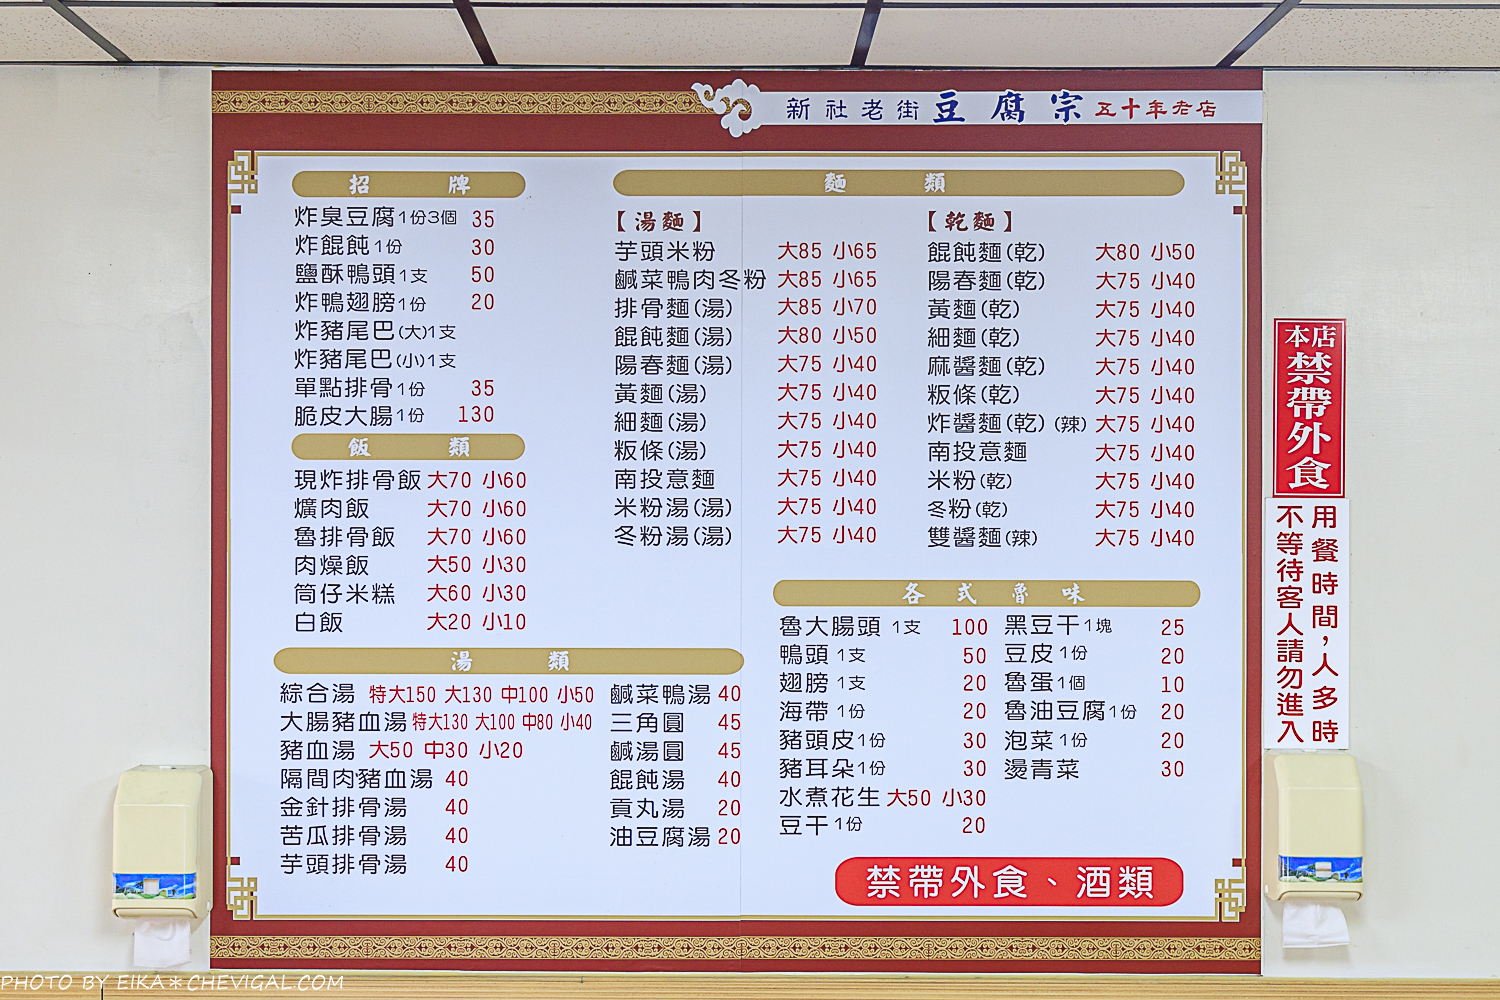 新社老街 豆腐宗 五十年老店
招牌
炸臭豆腐1份3個 35
炸餛飩1份 30
鹽酥鴨頭1支 50
炸鴨翅膀1份 20
炸豬尾巴(大)1支
炸豬尾巴(小)1支
單點排骨1份 35
脆皮大腸1份 130
飯類
現炸排骨飯 大70 小60
爌肉飯 大70 小60
魯排骨飯 大70 小60
肉燥飯 大50 小30
筒仔米糕 大60 小30
白飯 大20 小10
麵類
【湯麵】
芋頭米粉 大85 小65
鹹菜鴨肉冬粉 大85 小65
排骨麵(湯) 大85 小70
餛飩麵(湯) 大80 小50
陽春麵(湯) 大75 小40
黃麵(湯) 大75 小40
細麵(湯) 大75 小40
粄條(湯) 大75 小40
南投意麵 大75 小40
米粉湯(湯) 大75 小40
冬粉湯(湯) 大75 小40
【乾麵】
餛飩麵(乾) 大80 小50
陽春麵(乾) 大75 小40
黃麵(乾) 大75 小40
細麵(乾) 大75 小40
麻醬麵(乾) 大75 小40
粄條(乾) 大75 小40
炸醬麵(乾)(辣) 大75 小40
南投意麵 大75 小40
米粉(乾) 大75 小40
冬粉(乾) 大75 小40
雙醬麵(辣) 大75 小40
湯類
綜合湯 特大150 大130 中100 小50
大腸豬血湯 特大130 大100 中80 小40
豬血湯 大50 中30 小20
隔間肉豬血湯 40
金針排骨湯 40
苦瓜排骨湯 40
芋頭排骨湯 40
鹹菜鴨湯 40
三角圓 45
鹹湯圓 45
餛飩湯 40
貢丸湯 20
油豆腐湯 20
各式魯味
魯大腸頭 1支 100
鴨頭 1支 50
翅膀 1支 20
海帶 1份 20
豬頭皮1份 30
豬耳朵1份 30
水煮花生 大50 小30
豆干1份 20
黑豆干1塊 25
豆皮1份 20
魯蛋1個 10
魯油豆腐1份 20
泡菜1份 20
燙青菜 30
禁帶外食、酒類
本店
禁帶外食
用餐時間，人多時
不等待客人請勿進入
PHOTO BY EIKA＊CHEVIGAL.COM